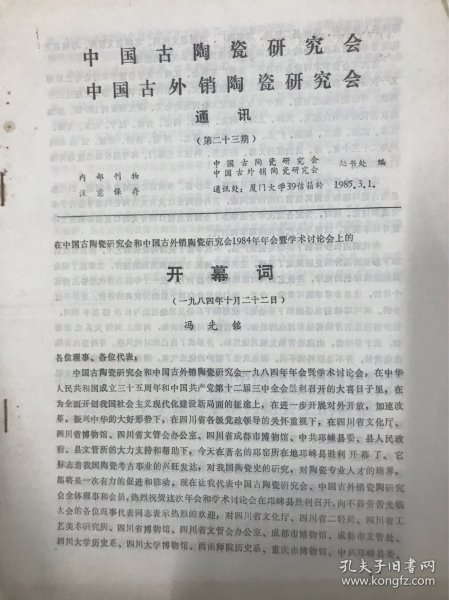 中国古陶瓷研究会
中国古外销陶瓷研究会
通讯
（第二十三期）
内部刊物
注意保存
中国古陶瓷研究会
中国古外销陶瓷研究会
秘书处 编
通讯处：厦门大学39信箱转 1985.3.1.
在中国古陶瓷研究会和中国古外销陶瓷研究会1984年年会暨学术讨论会上的
开幕词
（一九八四年十月二十二日）
冯先铭
各位理事、各位代表：
中国古陶瓷研究会和中国古外销陶瓷研究会一九八四年年会暨学术讨论会，在中华
人民共和国成立三十五周年和中国共产党第十二届三中全会胜利召开的大喜日子里，在
为全面开创我国社会主义现代化建设新局面的征途上，在进一步开展对外开放，加速改
革，振兴中华的大好形势下，在四川省各级党政领导的关怀重视下，在四川省文化厅、
四川省博物馆、四川省文管会办公室、四川省成都市博物馆、中共邛崃县委、县人民政
府、县文管所的大力支持和帮助下，今天在著名的邛窑所在地邛崃县胜利开幕了。它
标志着我国陶瓷考古事业的兴旺发达，对我国陶瓷史的研究，对陶瓷专业人才的培养，
都将是一次有力的促进和推动。现在让我代表中国古陶瓷研究会、中国古外销陶瓷研究
会全体理事和会员，热烈祝贺这次年会和学术讨论会在邛崃县胜利召开，向不辞劳苦光临
大会的各位理事代表同志表示热烈的欢迎，对四川省文化厅、四川省二轻局、四川省工
艺美术研究所、四川省博物馆、四川省文管会办公室、成都市博物馆、成都市文管处、
四川大学历史系、四川大学博物馆、西南师院历史系，重庆市博物馆、中共邛崃县委、
孔夫子旧书网